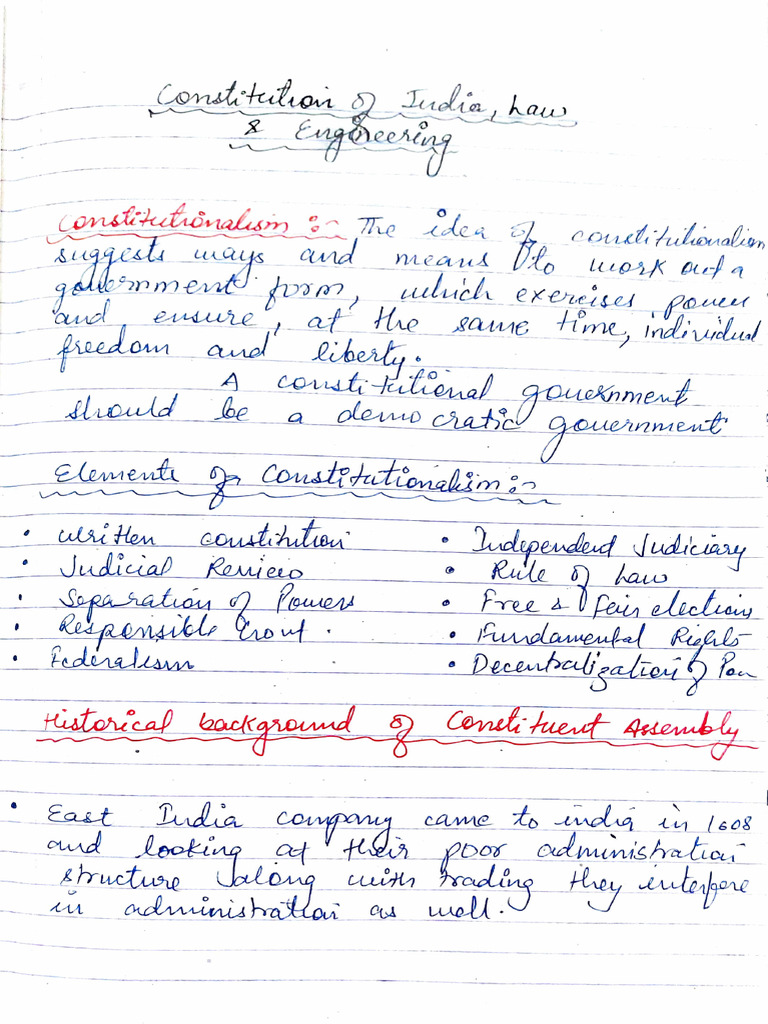 Constitution of India, Law
& Engineering
Constitutionalism :- The idea of constitutionalism
suggests ways and means to work out a
government form, which exercises power
and ensure, at the same time, individual
freedom and liberty.
A constitutional government
should be a democratic government
Elements of Constitutionalism :-
• Written constitution • Independent Judiciary
• Judicial Review • Rule of Law
• Separation of Powers • Free & Fair elections
• Responsible Govt. • Fundamental Rights
• Federalism • Decentralization of Pow
Historical background of Constituent Assembly
• East India company came to india in 1608
and looking at their poor administration
structure along with trading they interfere
in administration as well.